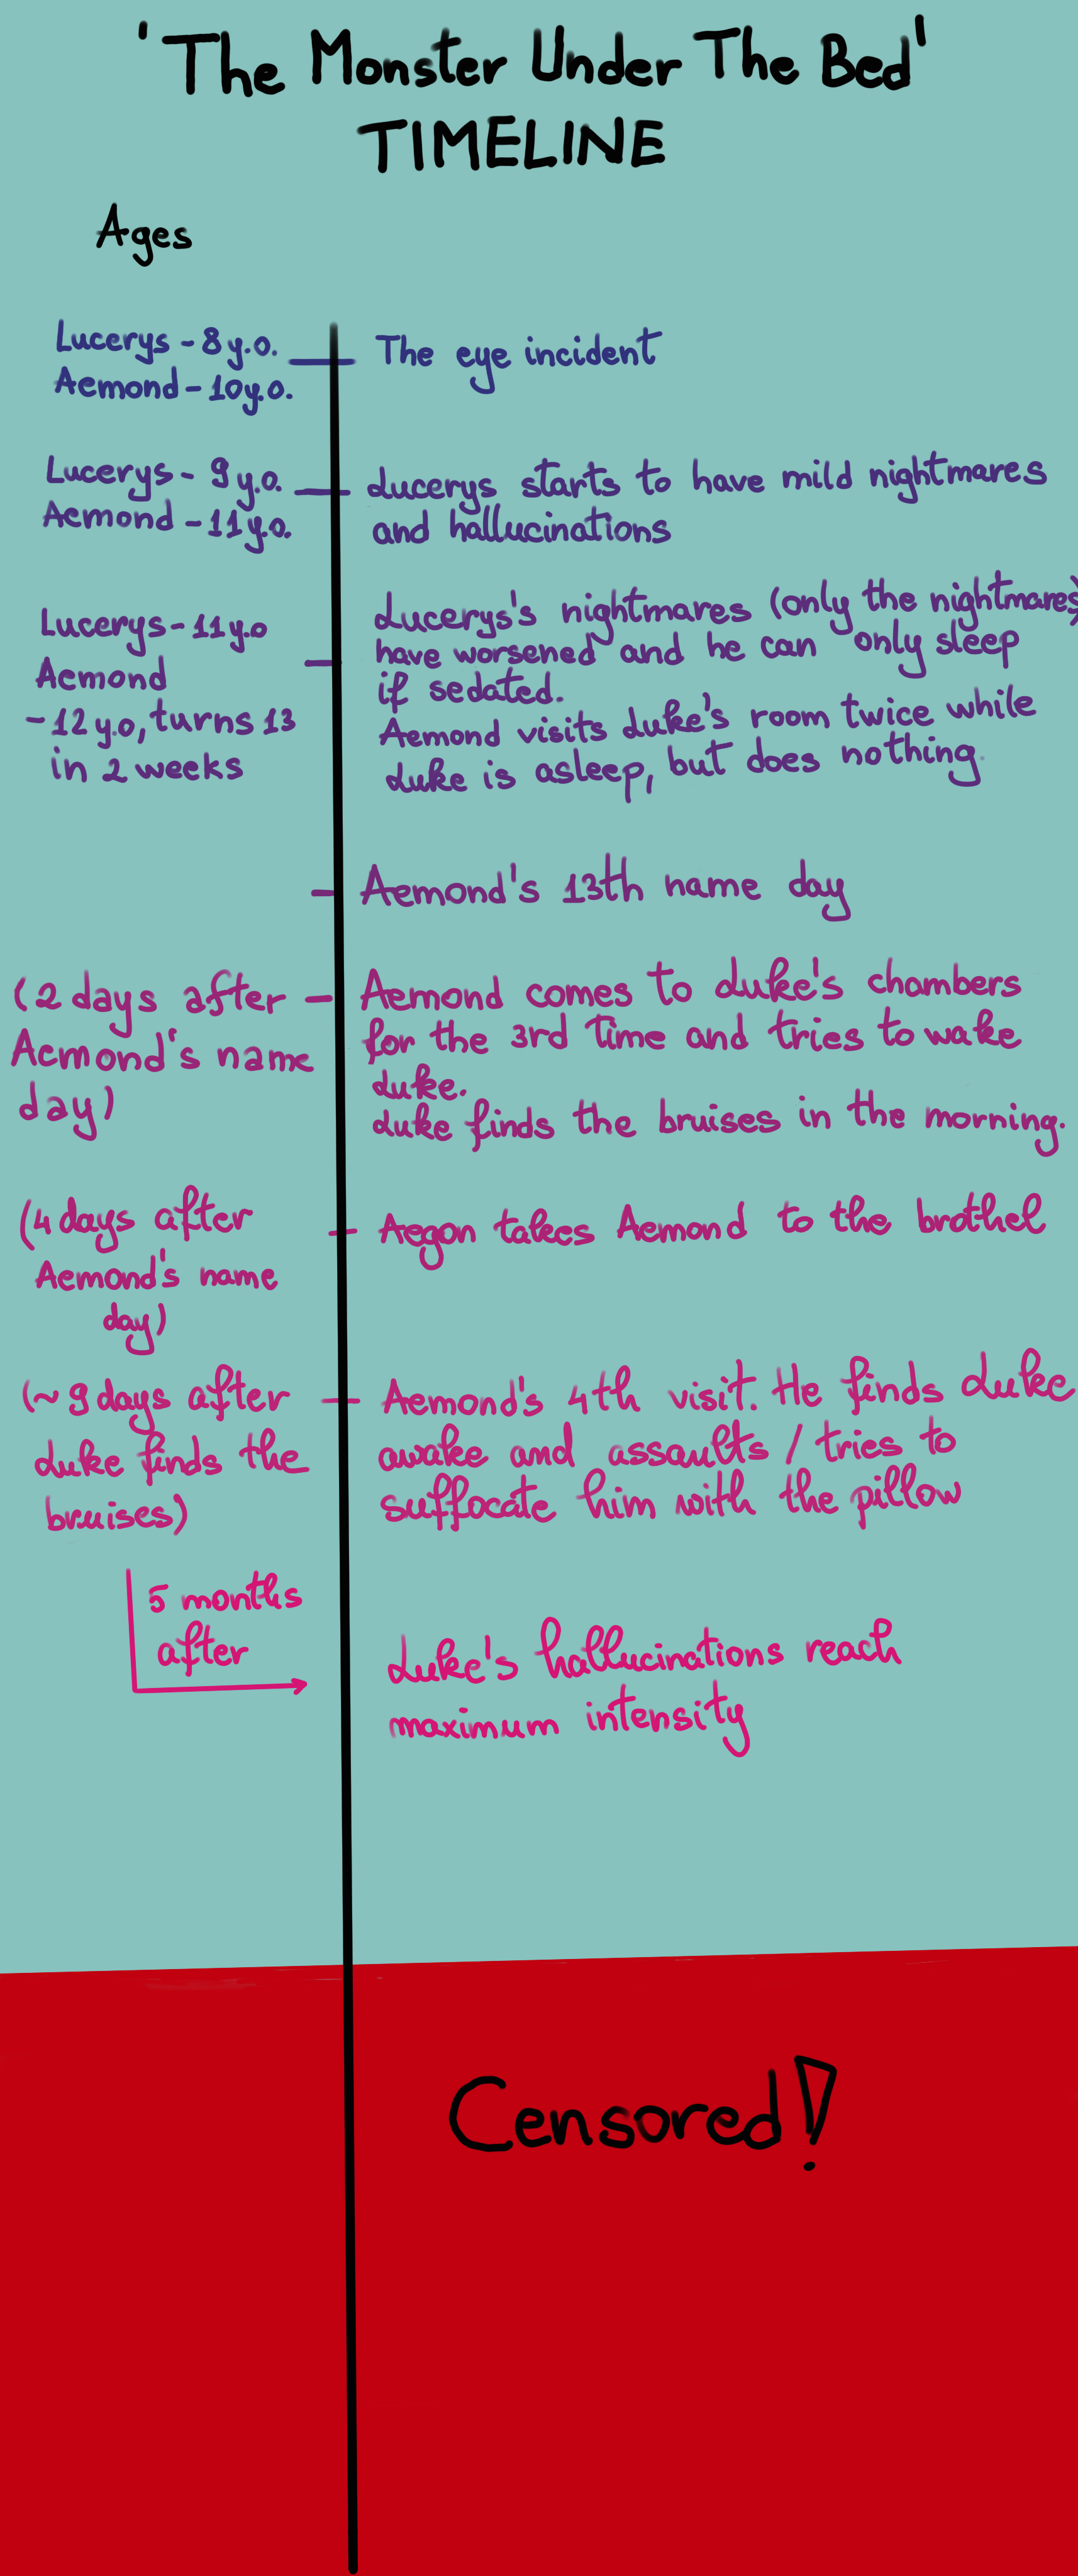 'The Monster Under The Bed'
TIMELINE
Ages
Lucerys - 8 y.o.
Aemond - 10 y.o.
The eye incident
Lucerys - 9 y.o.
Aemond - 11 y.o.
Lucerys starts to have mild nightmares
and hallucinations
Lucerys - 11 y.o
Aemond
- 12 y.o, turns 13
in 2 weeks
Lucerys's nightmares (only the nightmares)
have worsened and he can only sleep
if sedated.
Aemond visits Luke's room twice while
Luke is asleep, but does nothing.
Aemond's 13th name day
(2 days after
Aemond's name
day)
Aemond comes to Luke's chambers
for the 3rd time and tries to wake
Luke.
Luke finds the bruises in the morning.
(4 days after
Aemond's name
day)
Aegon takes Aemond to the brothel
(~ 9 days after
Luke finds the
bruises)
Aemond's 4th visit. He finds Luke
awake and assaults / tries to
suffocate him with the pillow
5 months
after
Luke's hallucinations reach
maximum intensity
Censored!